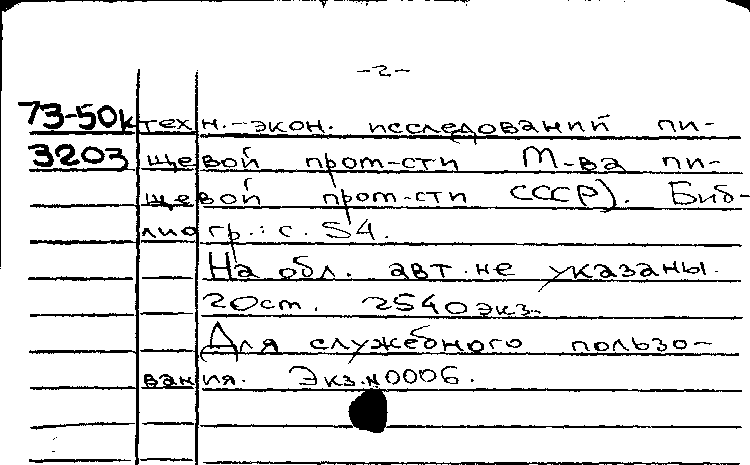 -2-
73-50к техн.-экон. исследований пи-
3203 щевой пром-сти М-ва пи-
щевой пром-сти СССР). Биб-
лиогр.: с. 54.
На обл. авт. не указаны.
20 ст. 2540 экз.
Для служебного пользо-
вания. Экз. N 0006.